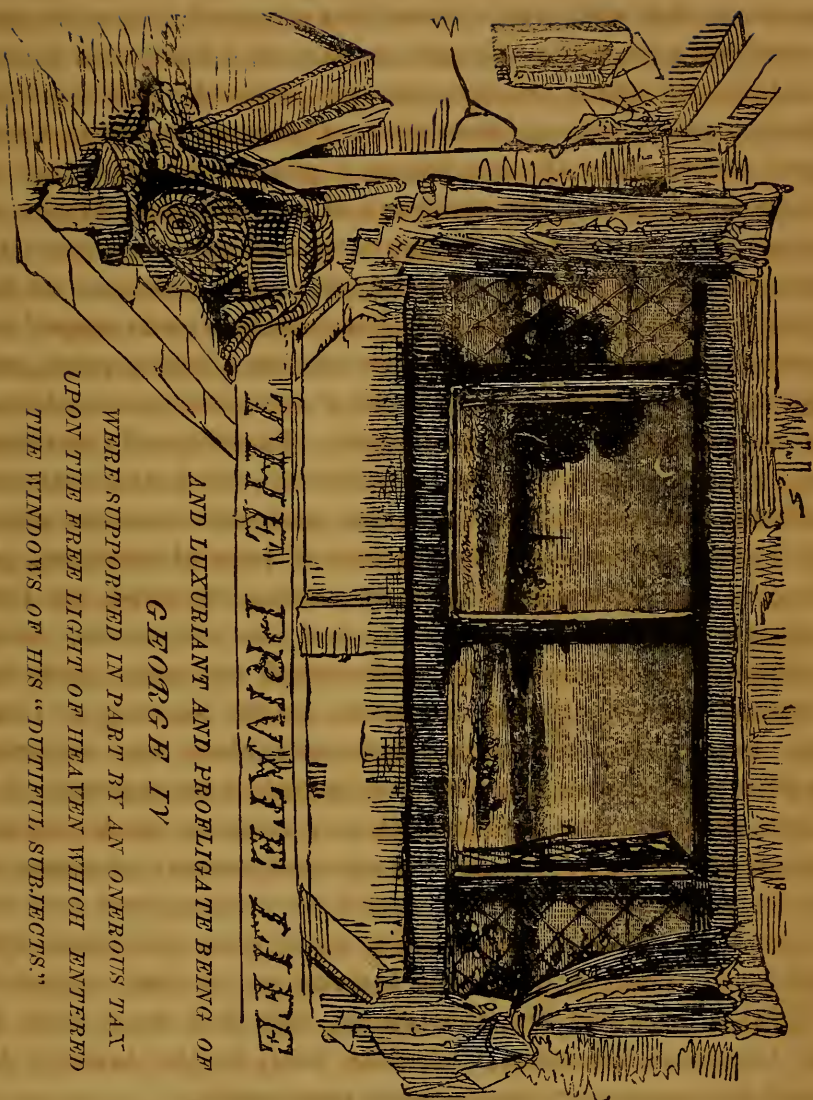 THE PRIVATE LIFE
AND LUXURIANT AND PROFLIGATE BEING OF
GEORGE IV
WERE SUPPORTED IN PART BY AN ONEROUS TAX
UPON THE FREE LIGHT OF HEAVEN WHICH ENTERED
THE WINDOWS OF HIS "DUTIFUL SUBJECTS."